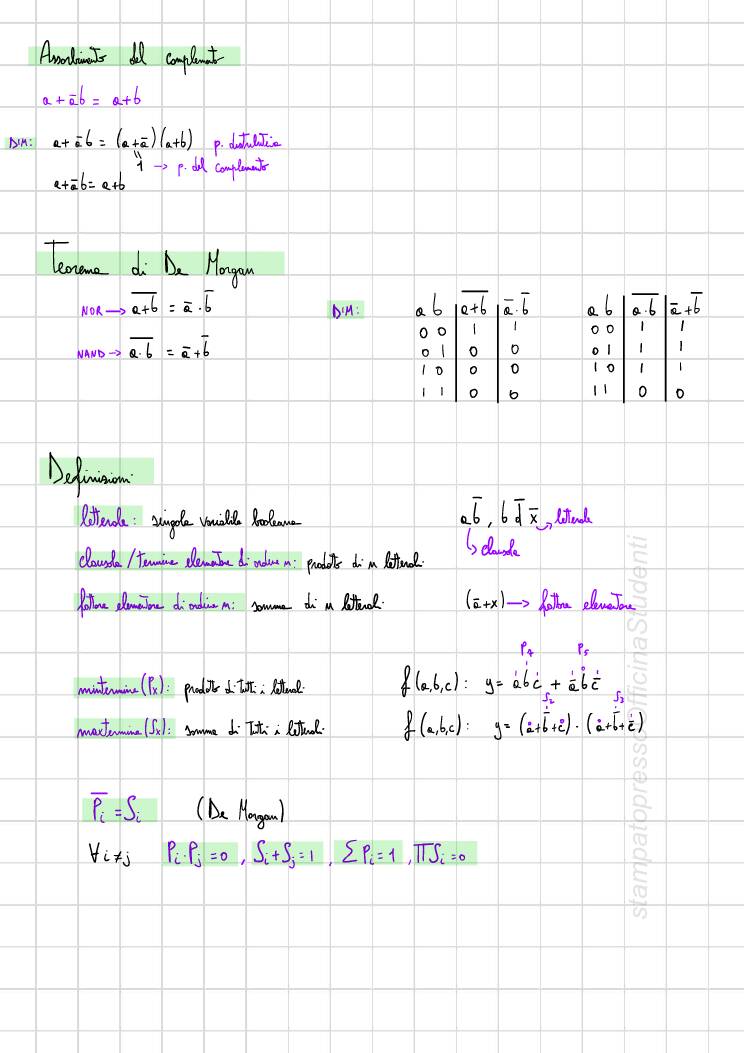 Assorbimento del complemento
a + a̅b = a+b
DIM: a + a̅b = (a+a̅)(a+b) p. distributiva
1 → p. del complemento
a+a̅b = a+b
Teorema di De Morgan
NOR → \overline{a+b} = a̅ · b̅
NAND → \overline{a·b} = a̅ + b̅
DIM:
a b | \overline{a+b} | a̅·b̅
0 0 | 1 | 1
0 1 | 0 | 0
1 0 | 0 | 0
1 1 | 0 | 0
a b | \overline{a·b} | a̅+b̅
0 0 | 1 | 1
0 1 | 1 | 1
1 0 | 1 | 1
1 1 | 0 | 0
Definizioni
letterale: singola variabile booleana
ab̅, b d̅ x̅ → letterale
↳ clausola
clausola/termine elementare di ordine n: prodotto di n letterali
fattore elementare di ordine n: somma di n letterali
(a̅+x) → fattore elementare
mintermine (Px): prodotto di tutti i letterali
P₅
f(a,b,c): y =
maxtermine (Sx): somma di tutti i letterali
S₂ S₃
f(a,b,c): y =
P̅i = Si (De Morgan)
∀i≠j Pi·Pj=0, Si+Sj=1, ΣPi=1, ΠSi=0
stampatopressoOfficinaStudenti